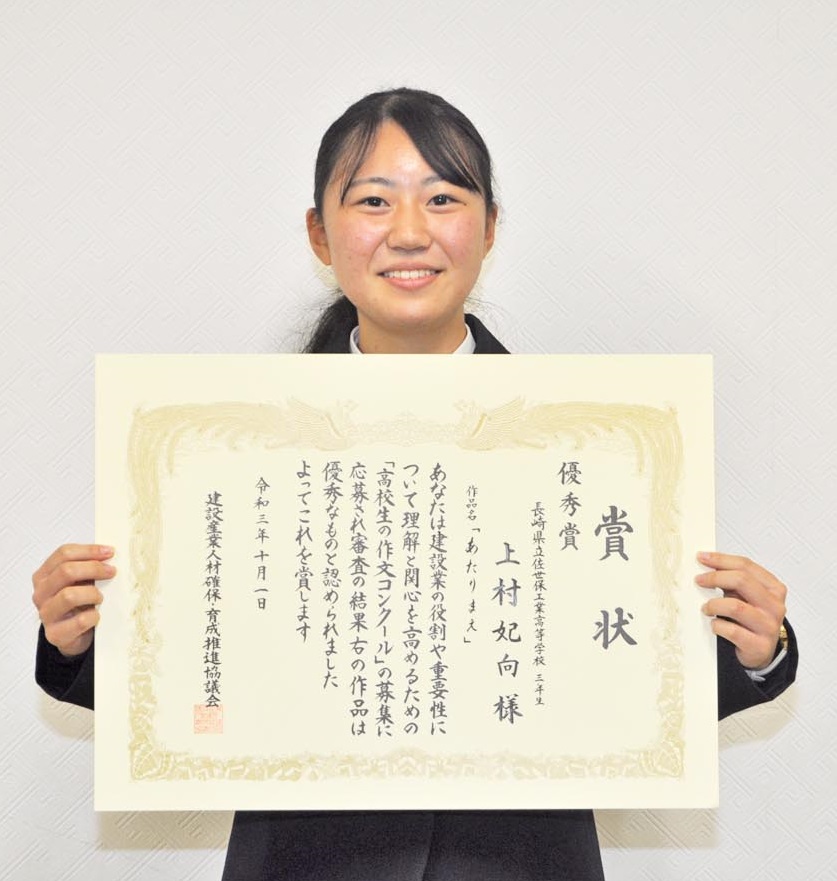 賞状
優秀賞
長崎県立佐世保工業高等学校 三年生
上村妃向様
作品名「あたりまえ」
あなたは建設業の役割や重要性に
ついて理解と関心を高めるための
「高校生の作文コンクール」の募集に
応募され審査の結果右の作品は
優秀なものと認められました
よってこれを賞します
令和三年十月一日
建設産業人材確保・育成推進協議会